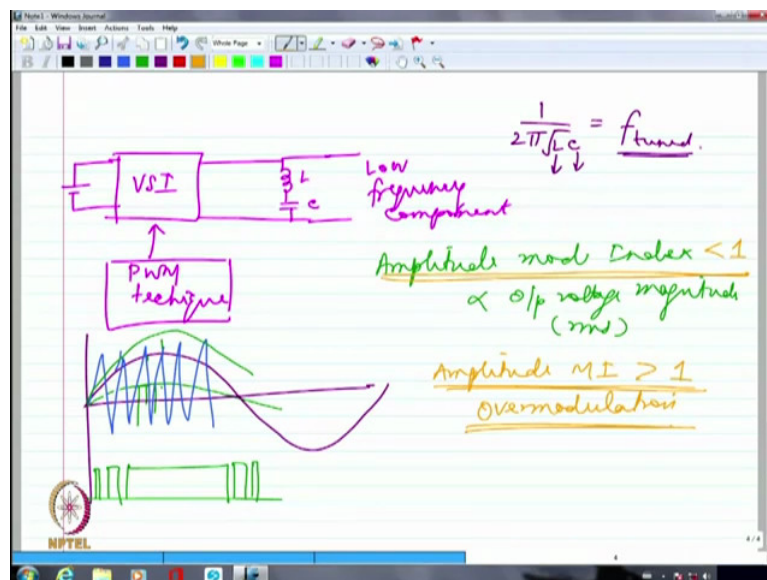 Note1 - Windows Journal
File Edit View Insert Actions Tools Help
Whole Page
B I
1
2π√LC = f tuned.
VSI
L
C
Low
frequency
component
PWM
techique
Amplitude mod Index < 1
∝ O/p voltage magnitude
(rms)
Amplitude MI > 1
Overmodulation
NPTEL
4 / 4
4